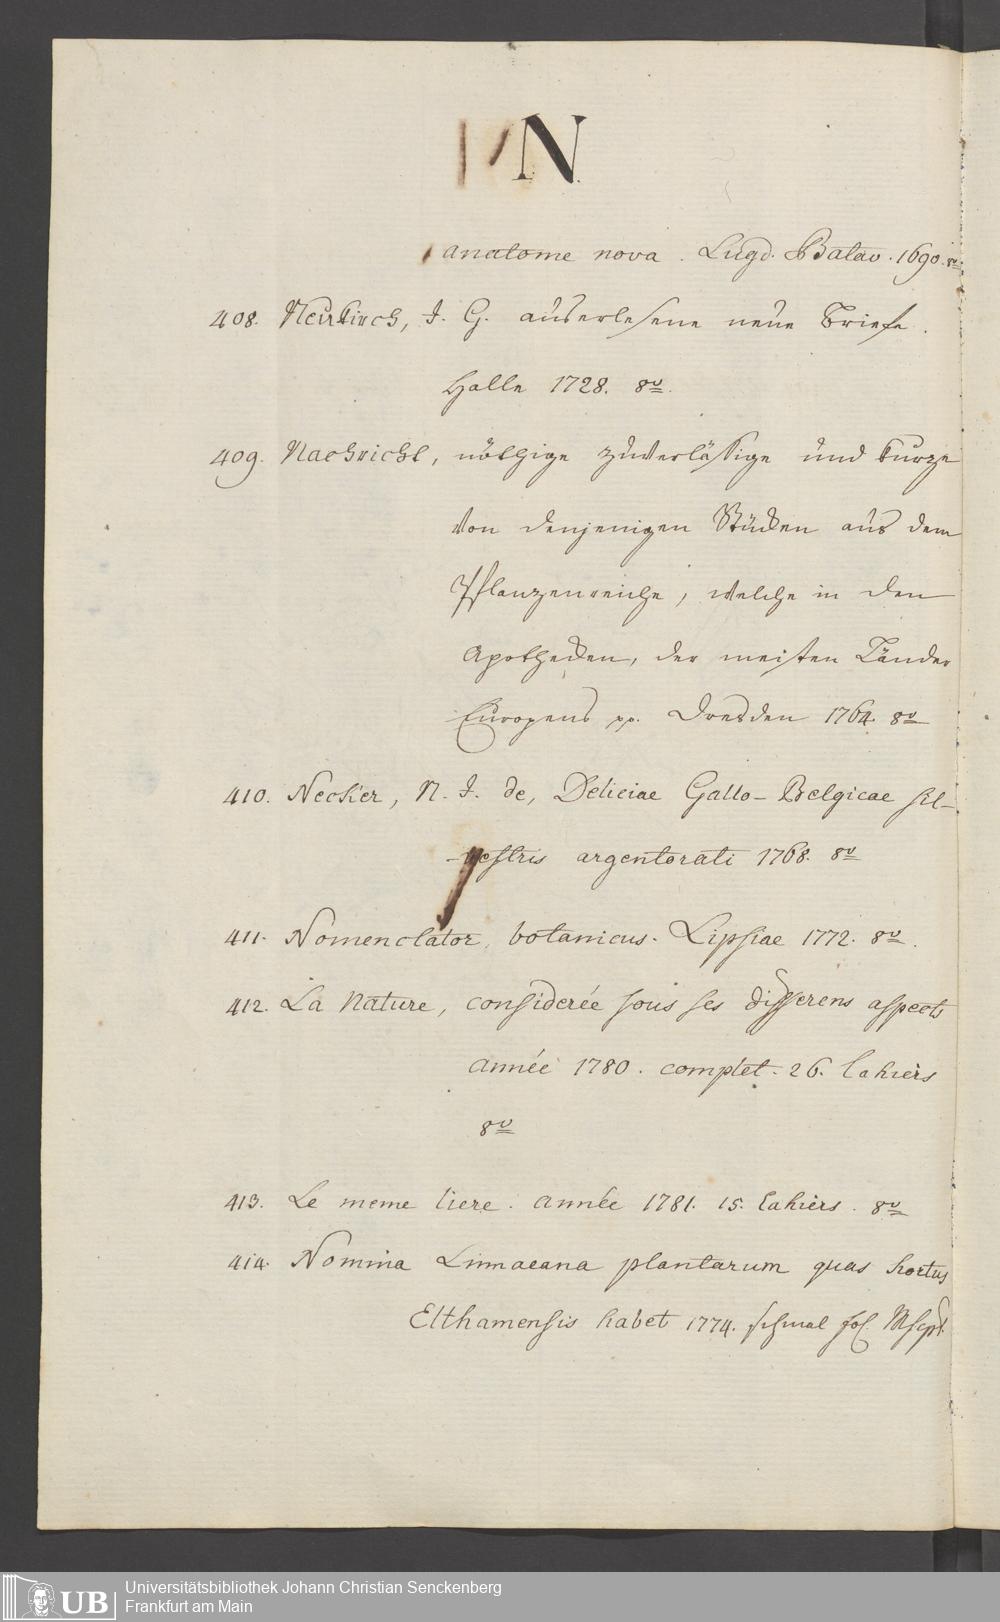 N.
anatome nova. Lugd. Batav. 1690. 8v
408. Neukirch, J. G. auserlesene neue Briefe.
Halle 1728. 8v.
409. Nachricht, nöthige zuverläßige und kurze
von denjenigen Stücken aus dem
Pflanzenreiche, welche in den
Apothecken, der meisten Länder
Europens pp. Dresden 1764. 8v
410. Necker, N. J. de, Deliciae Gallo-Belgicae sil-
-vestris argentorati 1768. 8v
411. Nomenclator, botanicus. Lipsiae 1772. 8v.
412. La Nature, considerée sous ses differens aspects
année 1780. complet. 26. Cahiers
8v
413. Le meme liere. année 1781. 15. Cahiers. 8v
414. Nomina Linnaeana plantarum quas hortus
Elthamensis habet 1774. schmal fol. Mscpt.
UB
Universitätsbibliothek Johann Christian Senckenberg
Frankfurt am Main